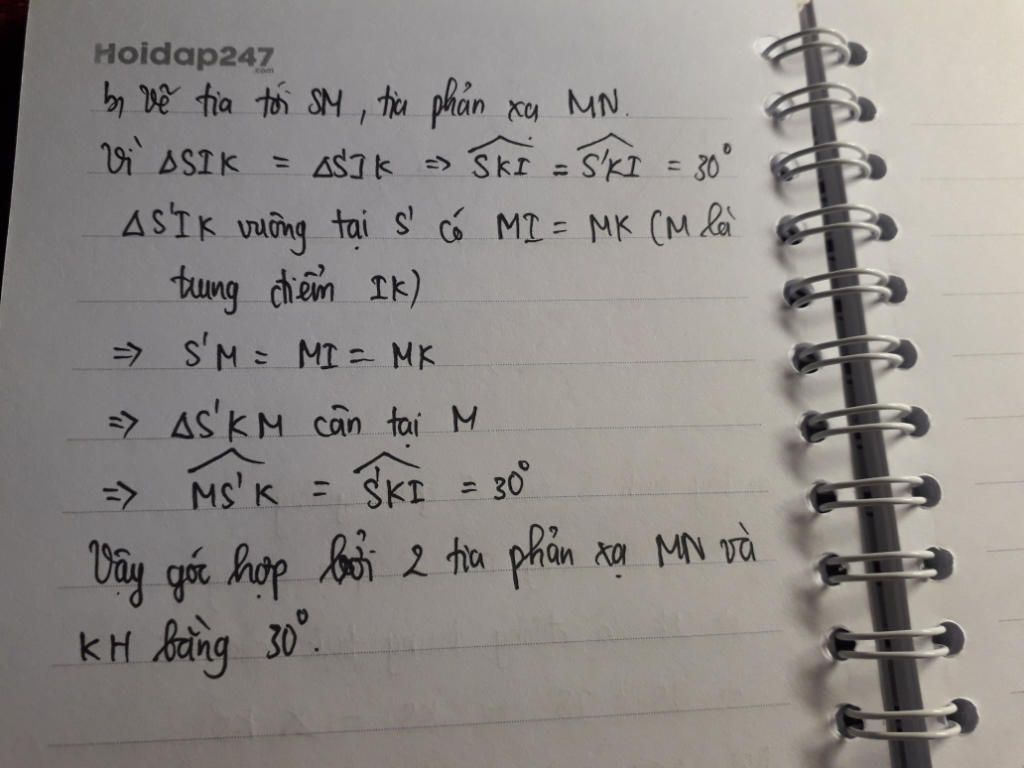 Hoidap247
.com
b, Vẽ tia tới SM, tia phản xạ MN.
Vì ΔSIK = ΔS'IK => SKI = S'KI = 30°
ΔS'IK vuông tại S' có MI = MK (M là
trung điểm IK)
=> S'M = MI = MK
=> ΔS'KM cân tại M
=> MS'K = S'KI = 30°
Vậy góc hợp bởi 2 tia phản xạ MN và
KH bằng 30°.